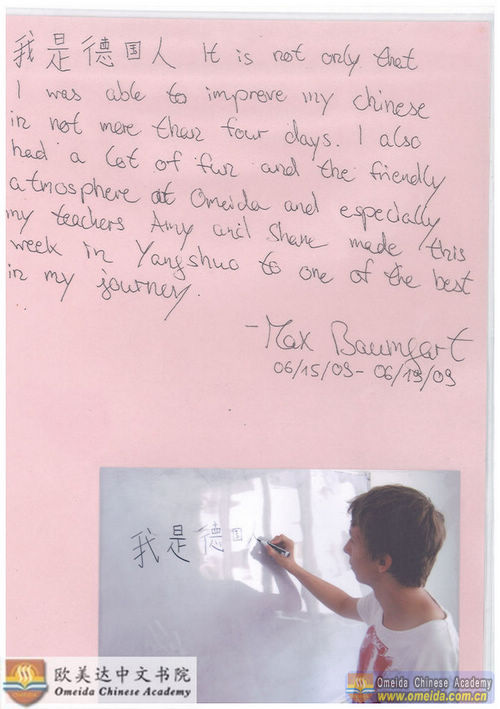 我是德国人 It is not only that
I was able to improve my chinese
in not more than four days. I also
had a lot of fun and the friendly
atmosphere at Omeida and especially
my teachers Amy and Shane made this
week in Yangshuo to one of the best
in my journey.
- Max Baumgart
06/15/09 - 06/19/09
我是德国人
欧美达中文书院
Omeida Chinese Academy
Omeida Chinese Academy
www.omeida.com.cn